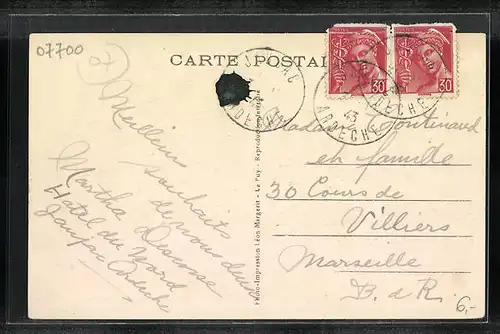 07700
07
CARTE POSTALE
30
30
ARDECHE
ARDECHE
43
ARDECHE
Meilleurs
souhaits
de nous deux
Martha
Hotel du Nord
Jaujac Ardèche
Photo-Impression Léon Margerit - Le Puy - Reproduction interdite
Madame
en famille
30 Cours de
Villiers
Marseille
B. d R.
6,-